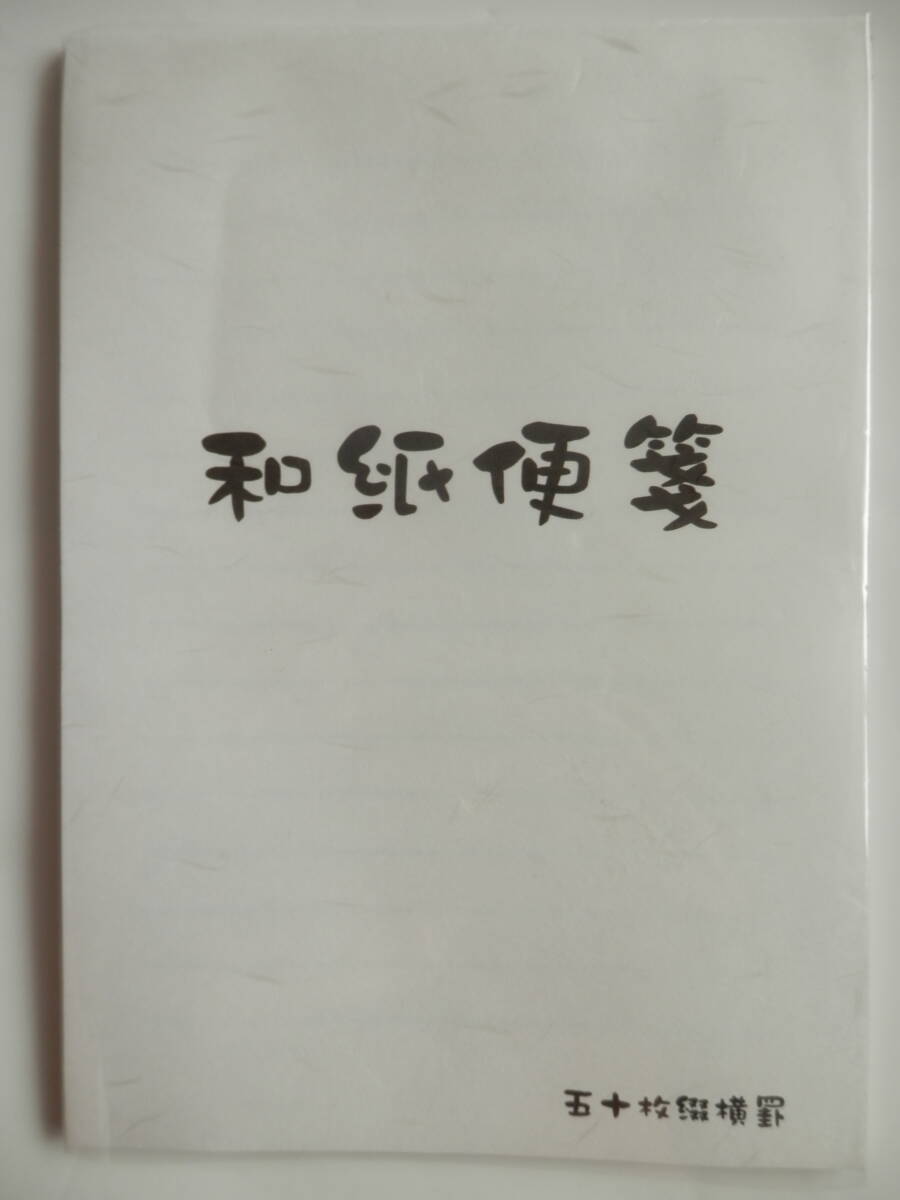 和紙便箋
五十枚綴横罫